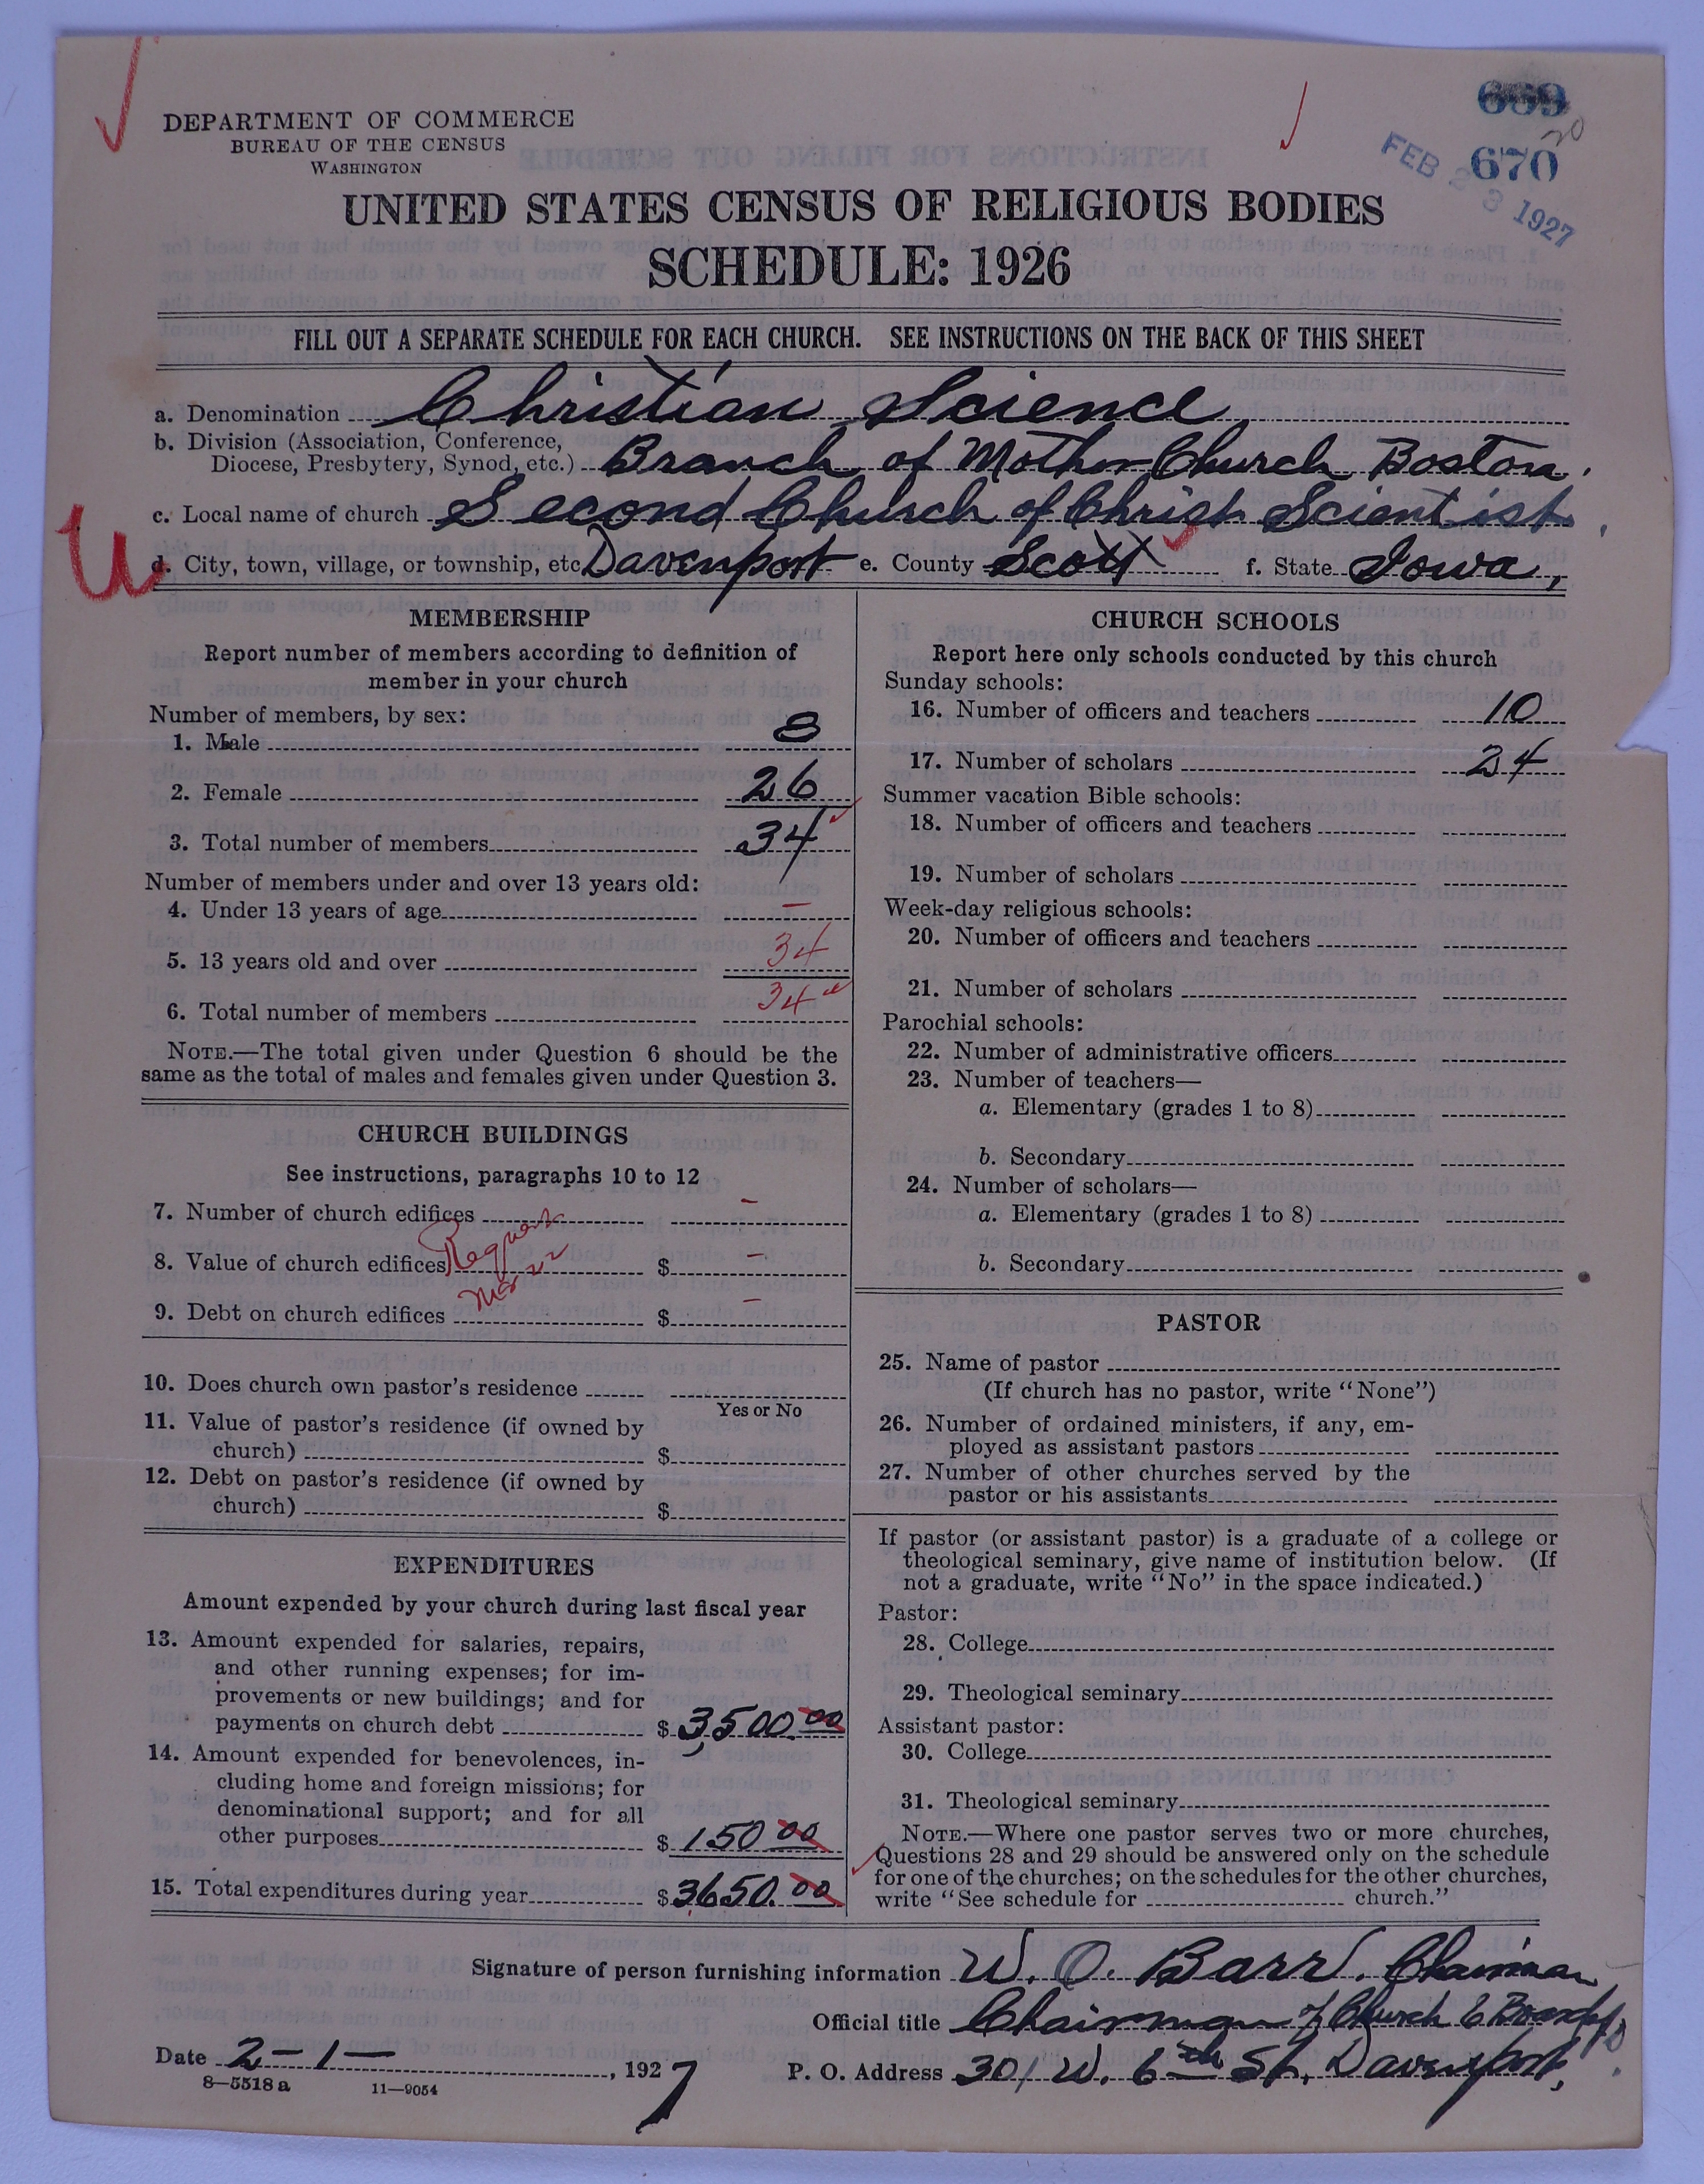 669
670
20
FEB 23 1927
DEPARTMENT OF COMMERCE
BUREAU OF THE CENSUS
WASHINGTON
UNITED STATES CENSUS OF RELIGIOUS BODIES
SCHEDULE: 1926
FILL OUT A SEPARATE SCHEDULE FOR EACH CHURCH. SEE INSTRUCTIONS ON THE BACK OF THIS SHEET
a. Denomination Christian Science
b. Division (Association, Conference,
Diocese, Presbytery, Synod, etc.) Branch of Mother Church Boston.
c. Local name of church Second Church of Christ Scientist,
U
d. City, town, village, or township, etc Davenport e. County Scott f. State Iowa,
MEMBERSHIP
Report number of members according to definition of
member in your church
Number of members, by sex:
1. Male 8
2. Female 26
3. Total number of members 34
Number of members under and over 13 years old:
4. Under 13 years of age –
5. 13 years old and over 34
6. Total number of members 34
NOTE.—The total given under Question 6 should be the
same as the total of males and females given under Question 3.
CHURCH BUILDINGS
See instructions, paragraphs 10 to 12
7. Number of church edifices –
8. Value of church edifices $ –
Request
Mar 22
9. Debt on church edifices $ –
10. Does church own pastor's residence
Yes or No
11. Value of pastor's residence (if owned by
church) $
12. Debt on pastor's residence (if owned by
church) $
EXPENDITURES
Amount expended by your church during last fiscal year
13. Amount expended for salaries, repairs,
and other running expenses; for im-
provements or new buildings; and for
payments on church debt $ 3,500.00
14. Amount expended for benevolences, in-
cluding home and foreign missions; for
denominational support; and for all
other purposes $ 150 00
15. Total expenditures during year $ 3650.00
CHURCH SCHOOLS
Report here only schools conducted by this church
Sunday schools:
16. Number of officers and teachers 10
17. Number of scholars 24
Summer vacation Bible schools:
18. Number of officers and teachers
19. Number of scholars
Week-day religious schools:
20. Number of officers and teachers
21. Number of scholars
Parochial schools:
22. Number of administrative officers
23. Number of teachers—
a. Elementary (grades 1 to 8)
b. Secondary
24. Number of scholars—
a. Elementary (grades 1 to 8)
b. Secondary
PASTOR
25. Name of pastor
(If church has no pastor, write "None")
26. Number of ordained ministers, if any, em-
ployed as assistant pastors
27. Number of other churches served by the
pastor or his assistants
If pastor (or assistant pastor) is a graduate of a college or
theological seminary, give name of institution below. (If
not a graduate, write "No" in the space indicated.)
Pastor:
28. College
29. Theological seminary
Assistant pastor:
30. College
31. Theological seminary
NOTE.—Where one pastor serves two or more churches,
Questions 28 and 29 should be answered only on the schedule
for one of the churches; on the schedules for the other churches,
write "See schedule for church."
Signature of person furnishing information W. O. Barr. Chairman
Official title Chairman of Church
Date 2-1- , 1927 P. O. Address 301 W. 6th St, Davenport,
8—5518 a 11—9054